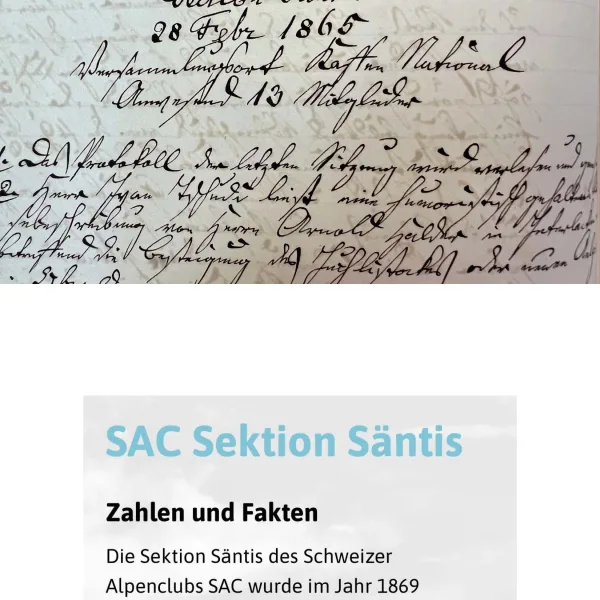 28 Febr 1865
Versammlungsort Kaffee National
Anwesend 13 Mitglieder
1. Das Protokoll der letzten Sitzung wird verlesen und
2. Herr Ivan Tschudi liest eine humoristisch
von Herrn Arnold Halder in
betreffend die Besteigung des oder neuen
SAC Sektion Säntis
Zahlen und Fakten
Die Sektion Säntis des Schweizer
Alpenclubs SAC wurde im Jahr 1869